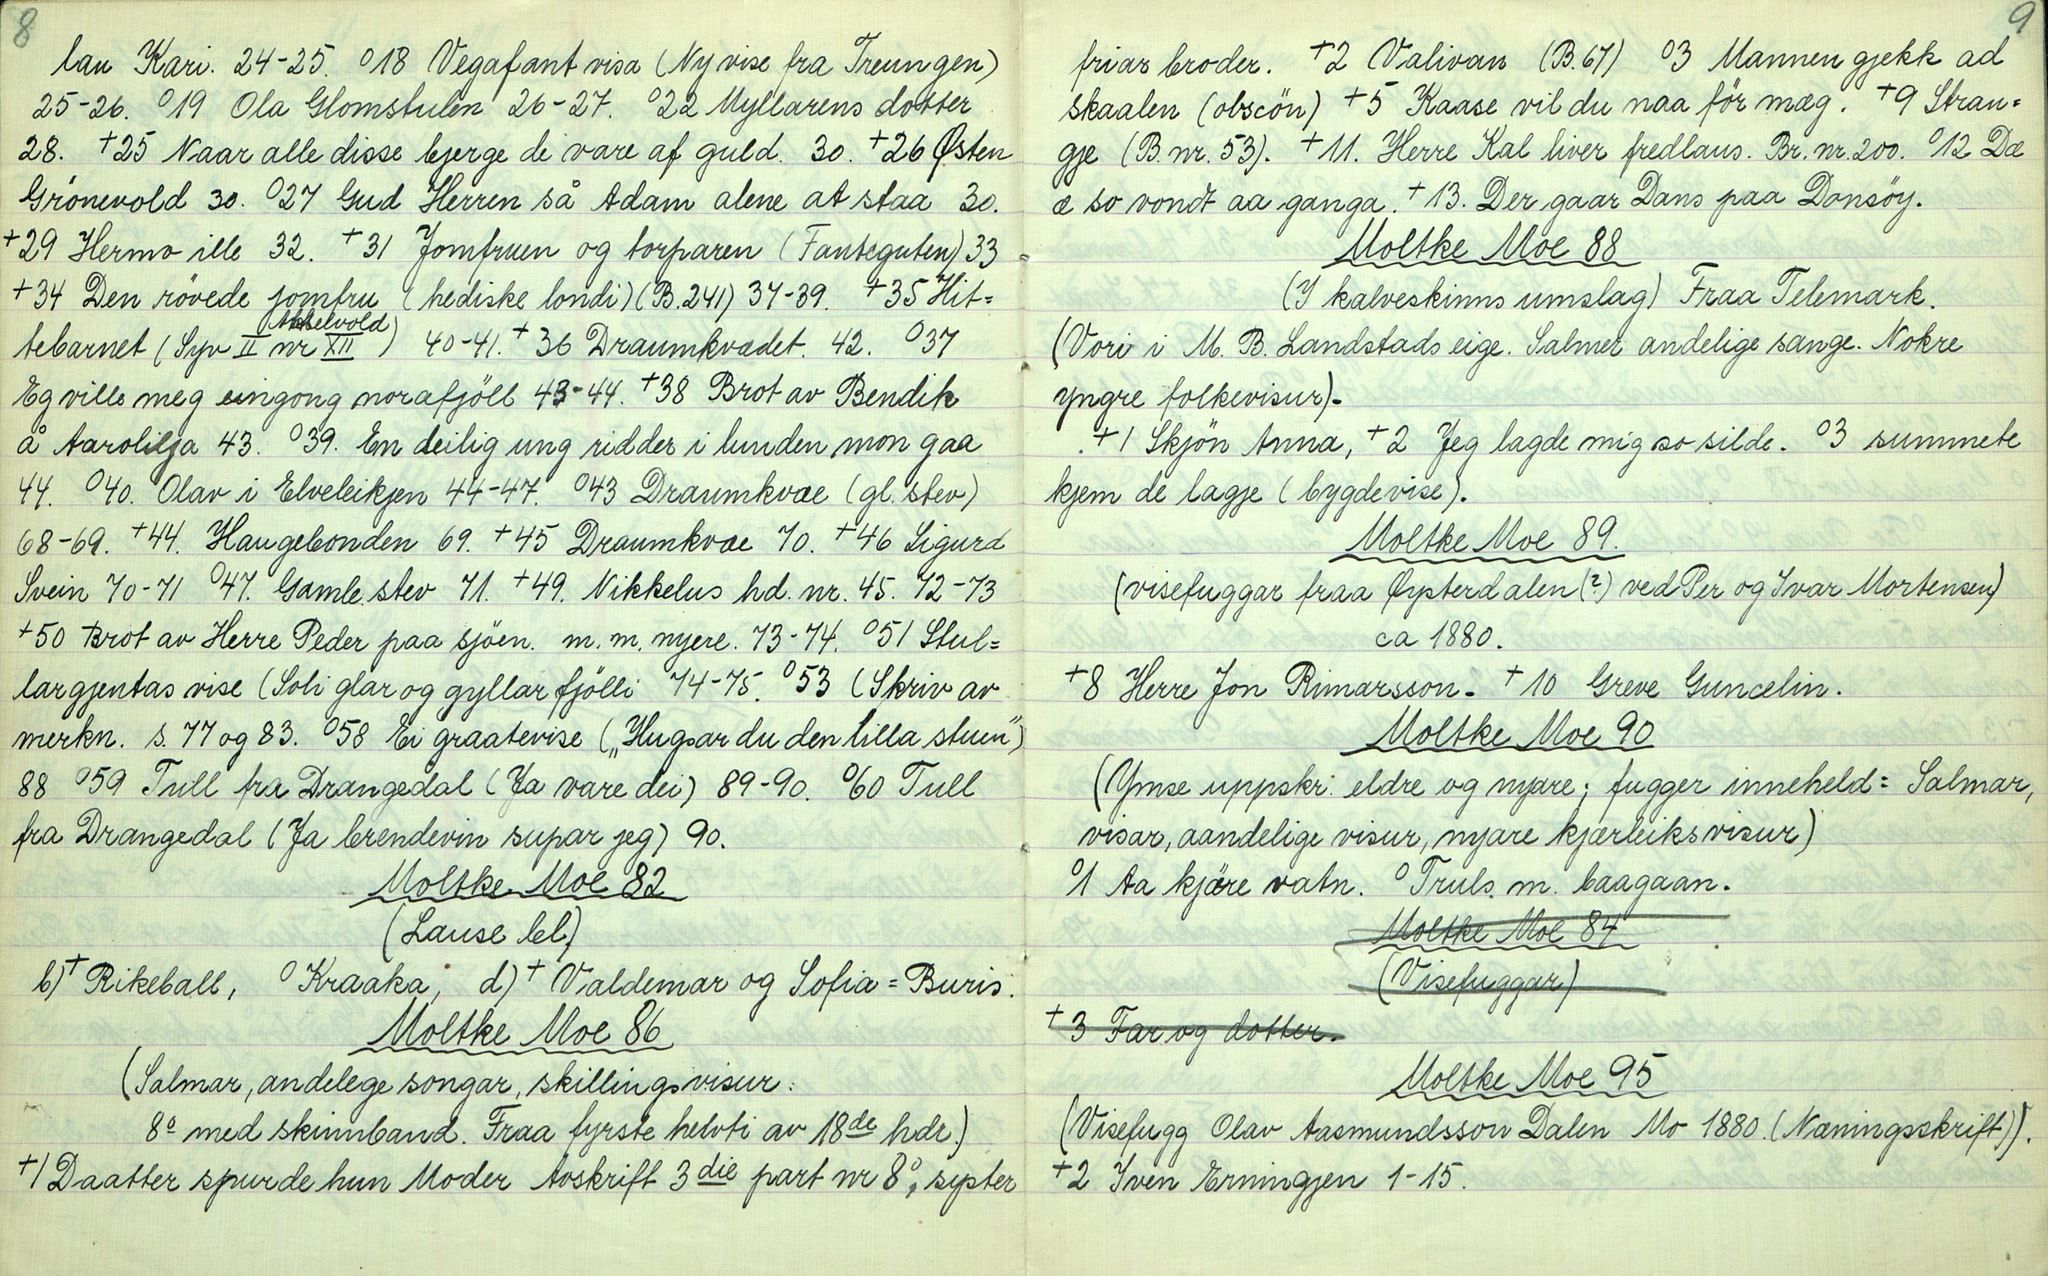 8
lau Kari. 24-25. o18 Vegafant visa (Ny vise fra Treungen)
25-26. o19 Ola Glomstulen 26-27. o22 Myllarens dotter
28. +25 Naar alle disse bjerge de vare af guld. 30. +26 Østen
Grönevold 30. o27 Gud Herren så Adam alene at staa 30.
+29 Hermo ille 32. +31 Jomfruen og torparen (Fanteguten) 33
+34 Den rövede jomfru (hediske londi) (B.241) 37-39. +35 Hit=
tebarnet (Syv II nr XII Akselvold) 40-41. +36 Draumkvædet. 42. o37
Eg ville meg eingong norafjöll 43-44. +38 Brot av Bendik
å Aarolilja 43. o39. En deilig ung ridder i lunden mon gaa
44. o40. Olav i Elveleikjen 44-47. o43 Draumkvæe (gl. stev)
68-69. +44. Haugebonden 69. +45 Draumkvæe 70. +46 Sigurd
Svein 70-71 o47. Gamle stev 71. +49. Nikkelus hd. nr. 45. 72-73
+50 Brot av Herre Peder paa sjöen. m. m. nyere. 73-74. o51 Stul=
largjentas vise (Soli glar og gyllar fjölli 74-75. o53 (Skriv av
merkn. s. 77 og 83. o58 Ei graatevise („Hugsar du den lilla stuen")
88 o59 Tull fra Drangedal (Ja vare dei) 89-90. o60 Tull
fra Drangedal (Ja brendevin supar jeg) 90.
Moltke Moe 82
(Lause bl.)
b)+ Rikeball, o Kraaka, d)+ Valdemar og Sofia = Buris.
Moltke Moe 86
(Salmar, andelege songar, skillingsvisur.
8o med skinnband. Fraa fyrste helvti av 18de hdr.)
+1 Daatter spurde hun Moder Avskrift 3die part nr 8o, syster
9
friar broder. +2 Valivan (B.67) o3 Mannen gjekk ad
skaalen (obscön) +5 Kaase vil du naa för mæg. +9 Stran=
gje (B. nr. 53). +11. Herre Kal liver fredlaus. Br. nr. 200. o12 Dæ
æ so vondt aa ganga. +13. Der gaar Dans paa Donsöy.
Moltke Moe 88
(I kalveskinns umslag) Fraa Telemark.
(Vori i M. B. Landstads eige. Salmer andelige sange. Nokre
yngre folkevisur).
+1 Skjön Anna, +2 Jeg lagde mig so silde. o3 summete
kjem de lagje (bygdevise).
Moltke Moe 89.
(visefuggar fraa Øysterdalen (?) ved Per og Ivar Mortensen)
ca 1880.
+8 Herre Jon Rimarsson. +10 Greve Guncelin.
Moltke Moe 90
(Ymse uppskr. eldre og nyare; fugger inneheld: Salmar,
visar, aandelige visur, nyare kjærleiksvisur)
o1 Aa kjöre vatn. o Truls m. baagaan.
Moltke Moe 84
(Visefuggar)
+3 Far og dotter.
Moltke Moe 95
(Visefugg Olav Aasmundsson Dalen Mo 1880. (Næningsskrift)).
+2 Iven Erningjen 1-15.